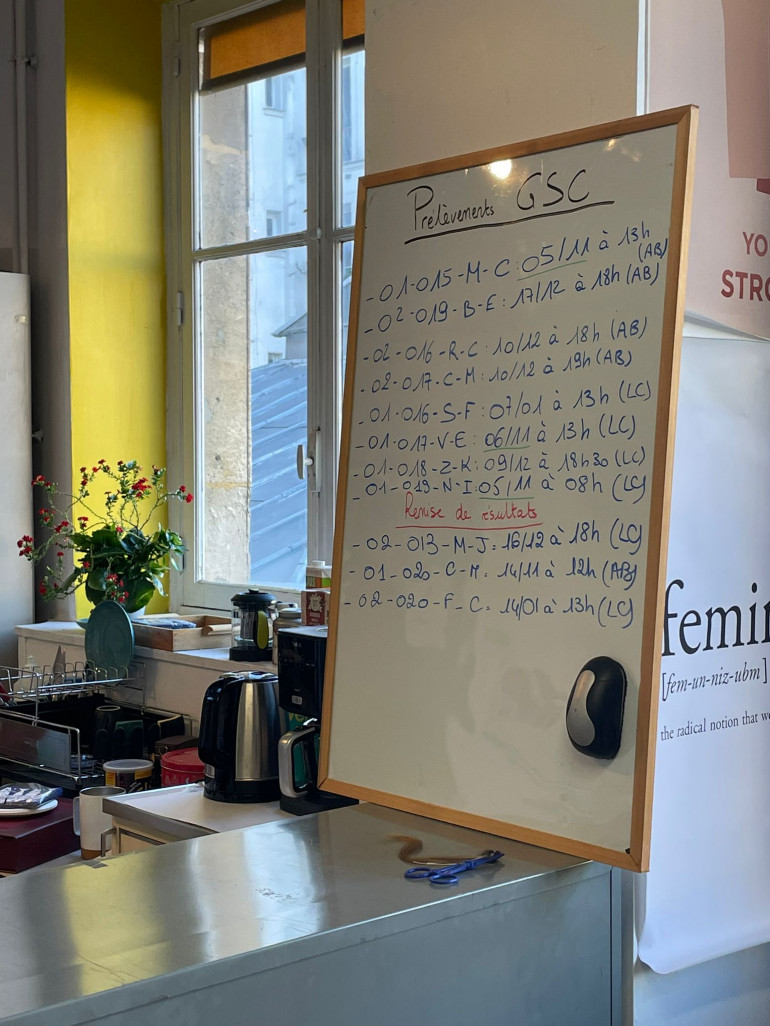 Prélèvements GSC
- 01-015-M-C : 05/11 à 13h (AB)
- 02-019-B-E : 17/12 à 18h (AB)
- 02-016-R-C : 10/12 à 18h (AB)
- 02-017-C-M : 10/12 à 19h (AB)
- 01-016-S-F : 07/01 à 13h (LC)
- 01-017-V-E : 06/11 à 13h (LC)
- 01-018-Z-K : 09/12 à 18h30 (LC)
- 01-019-N-I : 05/11 à 08h (LC)
Remise de résultats
- 02-013-M-J : 16/12 à 18h (LC)
- 01-020-C-M : 14/11 à 12h (AB)
- 02-020-F-C : 14/01 à 13h (LC)
YO
STRO
femin
[fem-un-niz-ubm]
the radical notion that we